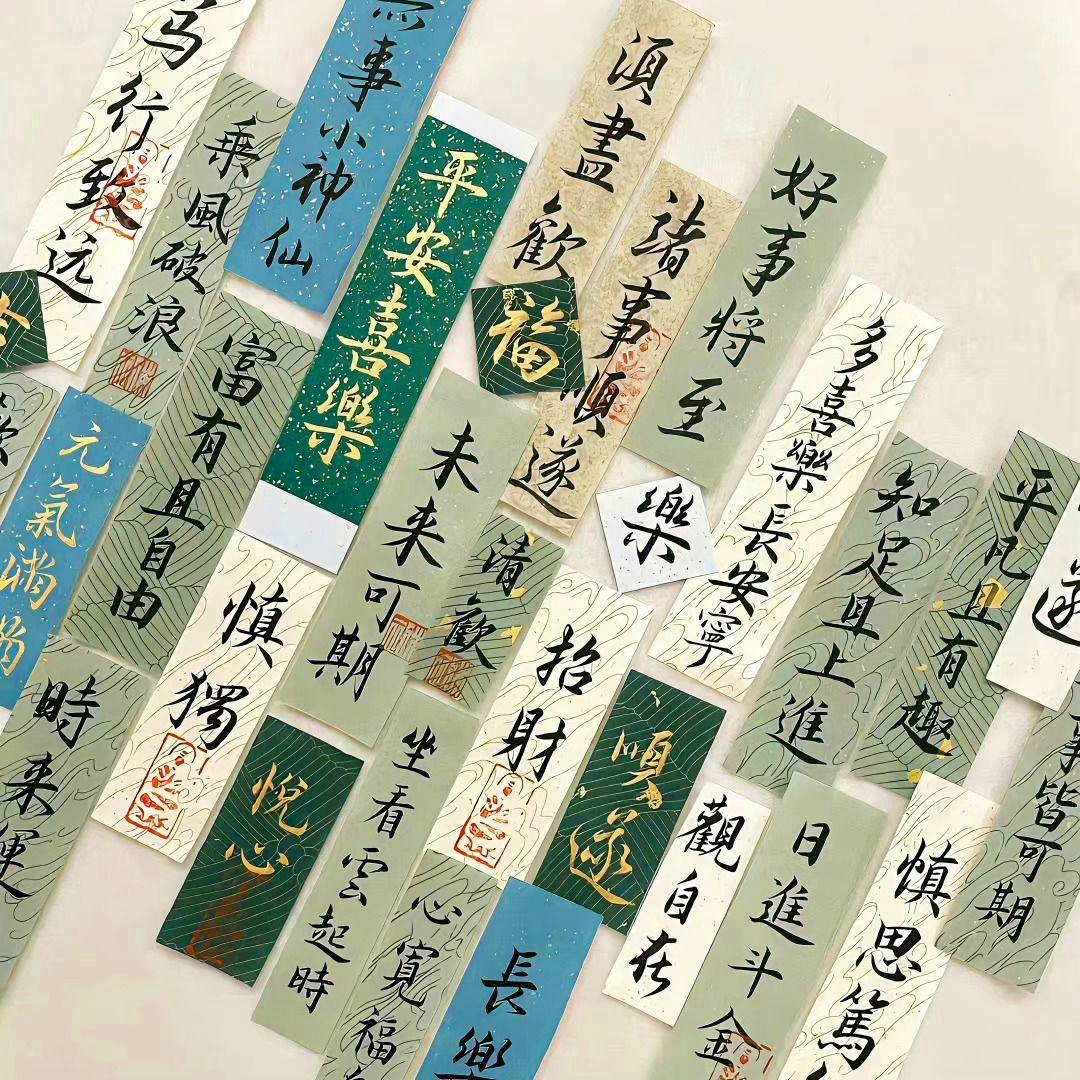 笃行致远
乘風破浪
事小神仙
平安喜樂
須盡歡
福
諸事順遂
好事將至
富有且自由
元氣滿滿
未来可期
清歡
樂
多喜樂長安寧
知足且上進
平凡且有趣
遂
事皆可期
慎獨
時来運
悦心
招財
順遂
坐看雲起時
心寬福
長樂
觀自在
日進斗金
慎思篤